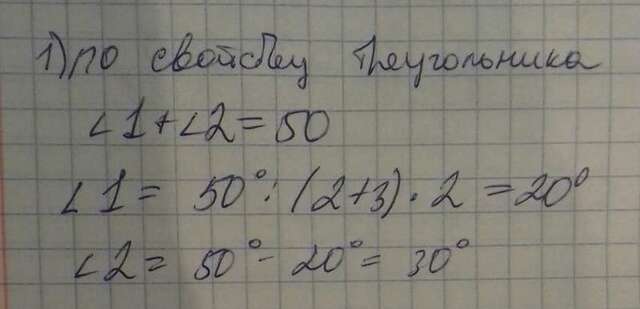 1) по свойству треугольника
∠1+∠2=50
∠1= 50°:(2+3)·2=20°
∠2= 50°-20°= 30°